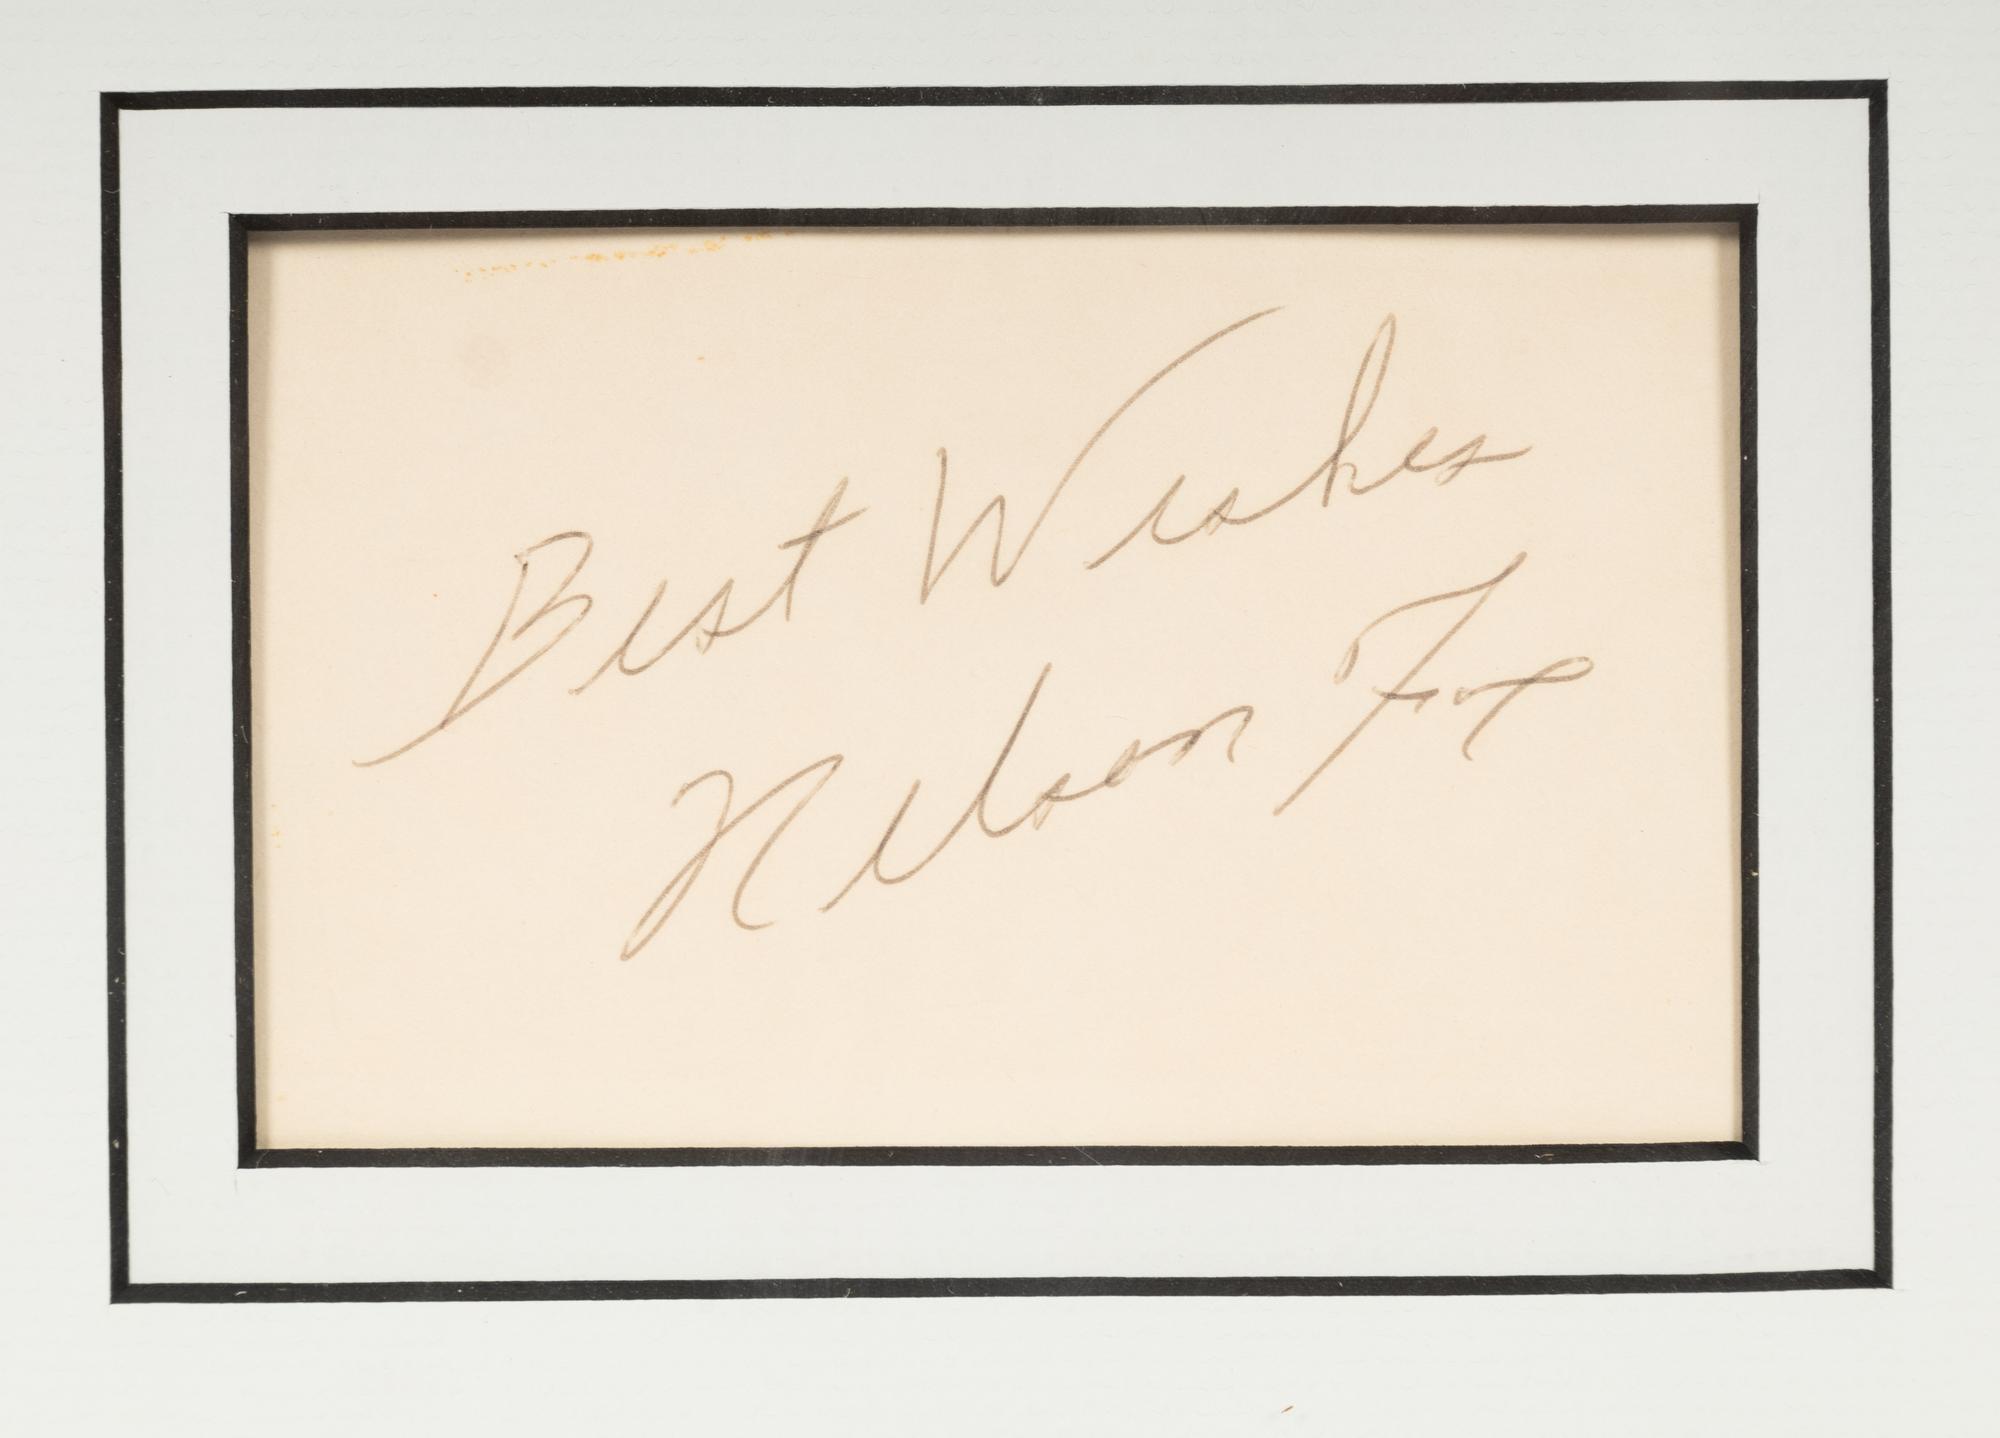 Best Wishes
Nelson Fox